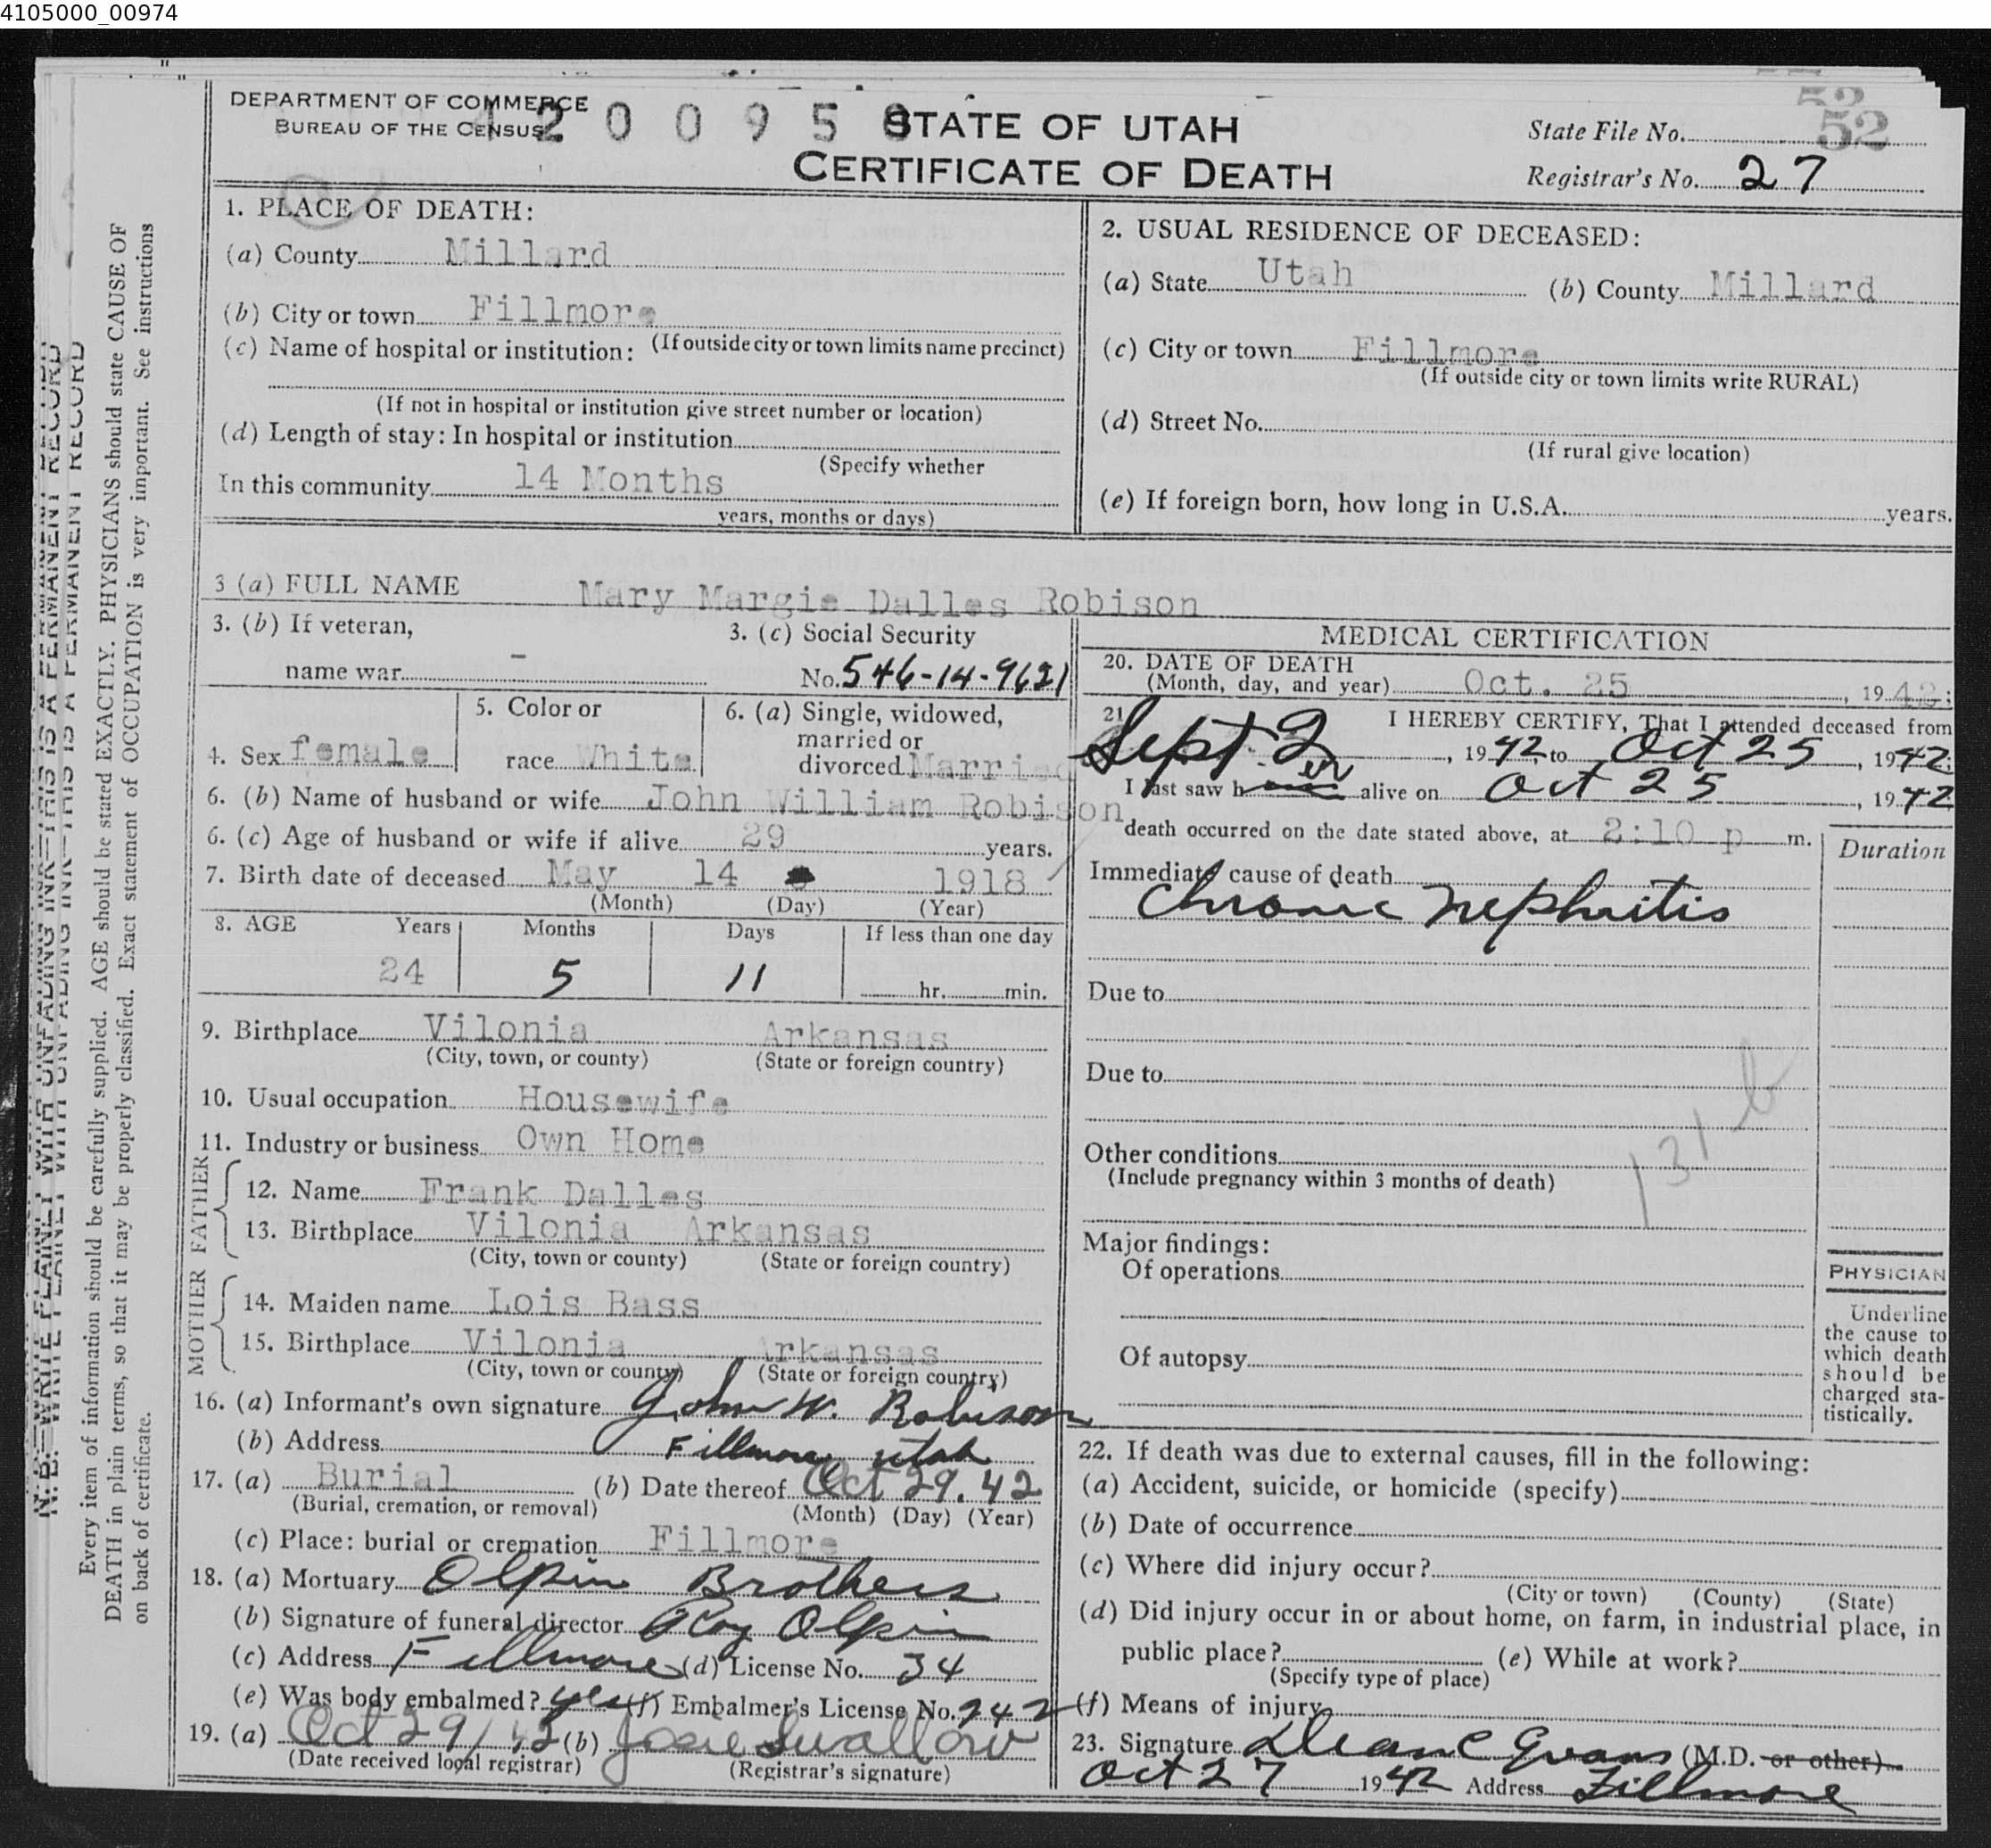 4105000_00974
DEPARTMENT OF COMMERCE
BUREAU OF THE CENSUS
4200958
STATE OF UTAH
CERTIFICATE OF DEATH
State File No. 52
Registrar's No. 27
1. PLACE OF DEATH:
(a) County Millard
(b) City or town Fillmore
(If outside city or town limits name precinct)
(c) Name of hospital or institution:
(If not in hospital or institution give street number or location)
(d) Length of stay: In hospital or institution
(Specify whether
In this community 14 Months
years, months or days)
2. USUAL RESIDENCE OF DECEASED:
(a) State Utah (b) County Millard
(c) City or town Fillmore
(If outside city or town limits write RURAL)
(d) Street No.
(If rural give location)
(e) If foreign born, how long in U.S.A. years.
3 (a) FULL NAME Mary Margie Dalles Robison
3. (b) If veteran,
name war -
3. (c) Social Security
No. 546-14-9621
4. Sex female
5. Color or
race White
6. (a) Single, widowed,
married or
divorced Married
6. (b) Name of husband or wife John William Robison
6. (c) Age of husband or wife if alive 29 years.
7. Birth date of deceased May 14 1918
(Month) (Day) (Year)
8. AGE Years Months Days If less than one day
24 5 11 hr. min.
9. Birthplace Vilonia Arkansas
(City, town, or county) (State or foreign country)
10. Usual occupation Housewife
11. Industry or business Own Home
FATHER
12. Name Frank Dalles
13. Birthplace Vilonia Arkansas
(City, town or county) (State or foreign country)
MOTHER
14. Maiden name Lois Bass
15. Birthplace Vilonia Arkansas
(City, town or county) (State or foreign country)
16. (a) Informant's own signature John W. Robison
(b) Address Fillmore Utah
17. (a) Burial (b) Date thereof Oct 29. 42
(Burial, cremation, or removal) (Month) (Day) (Year)
(c) Place: burial or cremation Fillmore
18. (a) Mortuary Olpin Brothers
(b) Signature of funeral director Roy Olpin
(c) Address Fillmore (d) License No. 34
(e) Was body embalmed? yes (f) Embalmer's License No. 242
19. (a) Oct 29/42 (b) Josie Swallow
(Date received local registrar) (Registrar's signature)
MEDICAL CERTIFICATION
20. DATE OF DEATH
(Month, day, and year) Oct. 25, 1942;
21. I HEREBY CERTIFY, That I attended deceased from
Sept. 2, 1942, to Oct 25, 1942;
I last saw her alive on Oct 25, 1942
death occurred on the date stated above, at 2:10 p m.
Duration
Immediate cause of death
Chronic Nephritis
Due to
Due to
131 b
Other conditions
(Include pregnancy within 3 months of death)
Major findings:
Of operations
Of autopsy
PHYSICIAN
Underline
the cause to
which death
should be
charged sta-
tistically.
22. If death was due to external causes, fill in the following:
(a) Accident, suicide, or homicide (specify)
(b) Date of occurrence
(c) Where did injury occur?
(City or town) (County) (State)
(d) Did injury occur in or about home, on farm, in industrial place, in
public place? (e) While at work?
(Specify type of place)
(f) Means of injury
23. Signature Dean C Evans (M.D. or other)
Oct 27 1942 Address Fillmore
N. B.—WRITE PLAINLY WITH UNFADING INK—THIS IS A PERMANENT RECORD
Every item of information should be carefully supplied. AGE should be stated EXACTLY. PHYSICIANS should state CAUSE OF
DEATH in plain terms, so that it may be properly classified. Exact statement of OCCUPATION is very important. See instructions
on back of certificate.